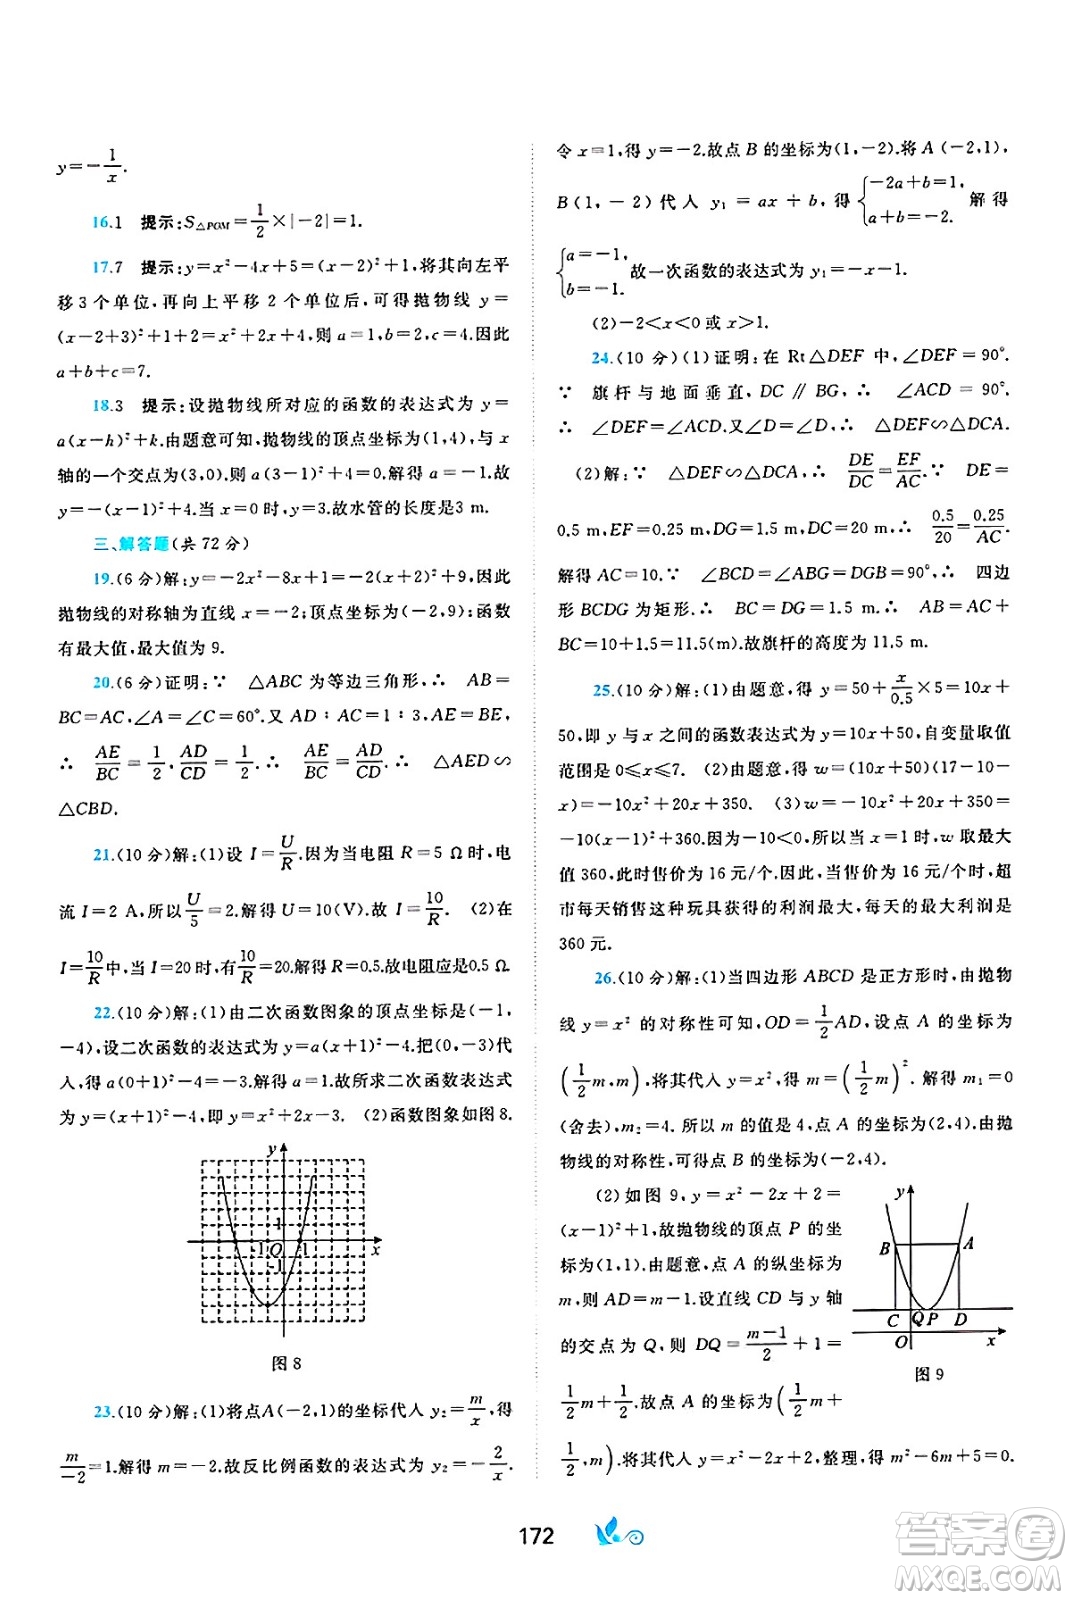 y=-1/x.
16.1 提示:S△PGM=1/2×|-2|=1.
17.7 提示:y=x²-4x+5=(x-2)²+1,将其向左平
移3个单位,再向上平移2个单位后,可得抛物线y=
(x-2+3)²+1+2=x²+2x+4,则a=1,b=2,c=4.因此
a+b+c=7.
18.3 提示:设抛物线所对应的函数的表达式为y=
a(x-h)²+k.由题意可知,抛物线的顶点坐标为(1,4),与x
轴的一个交点为(3,0),则a(3-1)²+4=0.解得a=-1.故
y=-(x-1)²+4.当x=0时,y=3.故水管的长度是3 m.
三、解答题(共72分)
19.(6分)解:y=-2x²-8x+1=-2(x+2)²+9,因此
抛物线的对称轴为直线x=-2;顶点坐标为(-2,9);函数
有最大值,最大值为9.
20.(6分)证明:∵ △ABC为等边三角形,∴ AB=
BC=AC,∠A=∠C=60°.又AD∶AC=1∶3,AE=BE,
∴ AE/BC=1/2,AD/CD=1/2.∴ AE/BC=AD/CD.∴ △AED∽
△CBD.
21.(10分)解:(1)设I=U/R.因为当电阻R=5 Ω时,电
流I=2 A,所以U/5=2.解得U=10(V).故I=10/R. (2)在
I=10/R中,当I=20时,有10/R=20.解得R=0.5.故电阻应是0.5 Ω.
22.(10分)解:(1)由二次函数图象的顶点坐标是(-1,
-4),设二次函数的表达式为y=a(x+1)²-4.把(0,-3)代
入,得a(0+1)²-4=-3.解得a=1.故所求二次函数表达式
为y=(x+1)²-4,即y=x²+2x-3. (2)函数图象如图8.
y
1
-1 O 1 x
-1
图8
23.(10分)解:(1)将点A(-2,1)的坐标代入y₂=m/x,得
m/-2=1.解得m=-2.故反比例函数的表达式为y₂=-2/x.
令x=1,得y=-2.故点B的坐标为(1,-2).将A(-2,1),
B(1,-2)代入y₁=ax+b,得{-2a+b=1, a+b=-2. 解得
{a=-1, b=-1. 故一次函数的表达式为y₁=-x-1.
(2)-2<x<0或x>1.
24.(10分)(1)证明:在Rt△DEF中,∠DEF=90°.
∵ 旗杆与地面垂直,DC∥BG,∴ ∠ACD=90°.
∴ ∠DEF=∠ACD.又∠D=∠D,∴ △DEF∽△DCA.
(2)解:∵ △DEF∽△DCA,∴ DE/DC=EF/AC.∵ DE=
0.5 m,EF=0.25 m,DG=1.5 m,DC=20 m,∴ 0.5/20=0.25/AC.
解得AC=10.∵ ∠BCD=∠ABG=∠DGB=90°,∴ 四边
形BCDG为矩形.∴ BC=DG=1.5 m.∴ AB=AC+
BC=10+1.5=11.5(m).故旗杆的高度为11.5 m.
25.(10分)解:(1)由题意,得y=50+x/0.5×5=10x+
50,即y与x之间的函数表达式为y=10x+50,自变量取值
范围是0≤x≤7. (2)由题意,得w=(10x+50)(17-10-
x)=-10x²+20x+350. (3)w=-10x²+20x+350=
-10(x-1)²+360.因为-10<0,所以当x=1时,w取最大
值360,此时售价为16元/个.因此,当售价为16元/个时,超
市每天销售这种玩具获得的利润最大,每天的最大利润是
360元.
26.(10分)解:(1)当四边形ABCD是正方形时,由抛物
线y=x²的对称性可知,OD=1/2AD,设点A的坐标为
(1/2m,m),将其代入y=x²,得m=(1/2m)².解得m₁=0
(舍去),m₂=4.所以m的值是4,点A的坐标为(2,4).由抛
物线的对称性,可得点B的坐标为(-2,4).
(2)如图9,y=x²-2x+2=
(x-1)²+1,故抛物线的顶点P的坐
标为(1,1).由题意,点A的纵坐标为
m,则AD=m-1.设直线CD与y轴
的交点为Q,则DQ=m-1/2+1=
1/2m+1/2.故点A的坐标为(1/2m+
1/2,m).将其代入y=x²-2x+2,整理,得m²-6m+5=0.
y
B A
C Q P D
O x
图9
172
答案圈
MXQE.COM